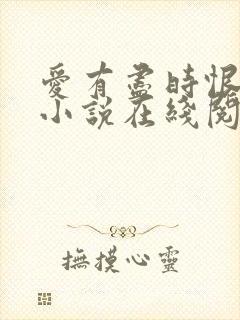 愛有盡時恨
小說在綫閱
撫摸心靈